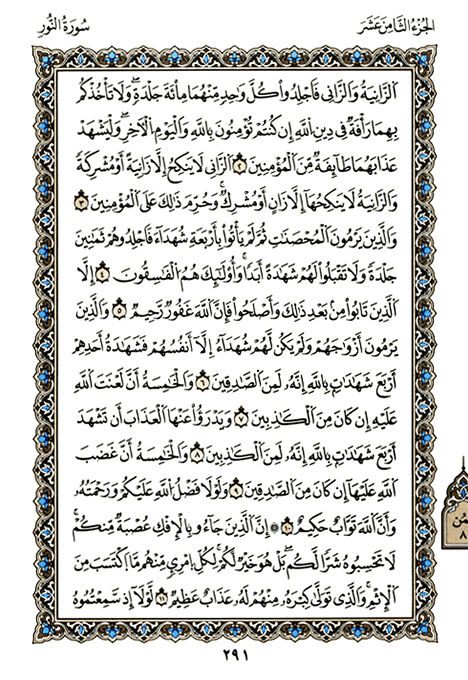 الجزء الثامن عشر
سورة النور
الزانية والزاني فاجلدوا كل واحد منهما مائة جلدة ولا تأخذكم
بهما رأفة في دين الله إن كنتم تؤمنون بالله واليوم الآخر وليشهد
عذابهما طائفة من المؤمنين ٢ الزاني لا ينكح إلا زانية أو مشركة
والزانية لا ينكحها إلا زان أو مشرك وحرم ذلك على المؤمنين ٣
والذين يرمون المحصنات ثم لم يأتوا بأربعة شهداء فاجلدوهم ثمانين
جلدة ولا تقبلوا لهم شهادة أبدا وأولئك هم الفاسقون ٤ إلا
الذين تابوا من بعد ذلك وأصلحوا فإن الله غفور رحيم ٥ والذين
يرمون أزواجهم ولم يكن لهم شهداء إلا أنفسهم فشهادة أحدهم
أربع شهادات بالله إنه لمن الصادقين ٦ والخامسة أن لعنت الله
عليه إن كان من الكاذبين ٧ ويدرؤا عنها العذاب أن تشهد
أربع شهادات بالله إنه لمن الكاذبين ٨ والخامسة أن غضب
الله عليها إن كان من الصادقين ٩ ولولا فضل الله عليكم ورحمته
وأن الله تواب حكيم ١٠ إن الذين جاءو بالإفك عصبة منكم
لا تحسبوه شرا لكم بل هو خير لكم لكل امرئ منهم ما اكتسب من
الإثم والذي تولى كبره منهم له عذاب عظيم ١١ لولا إذ سمعتموه
ثمن
٨
٢٩١